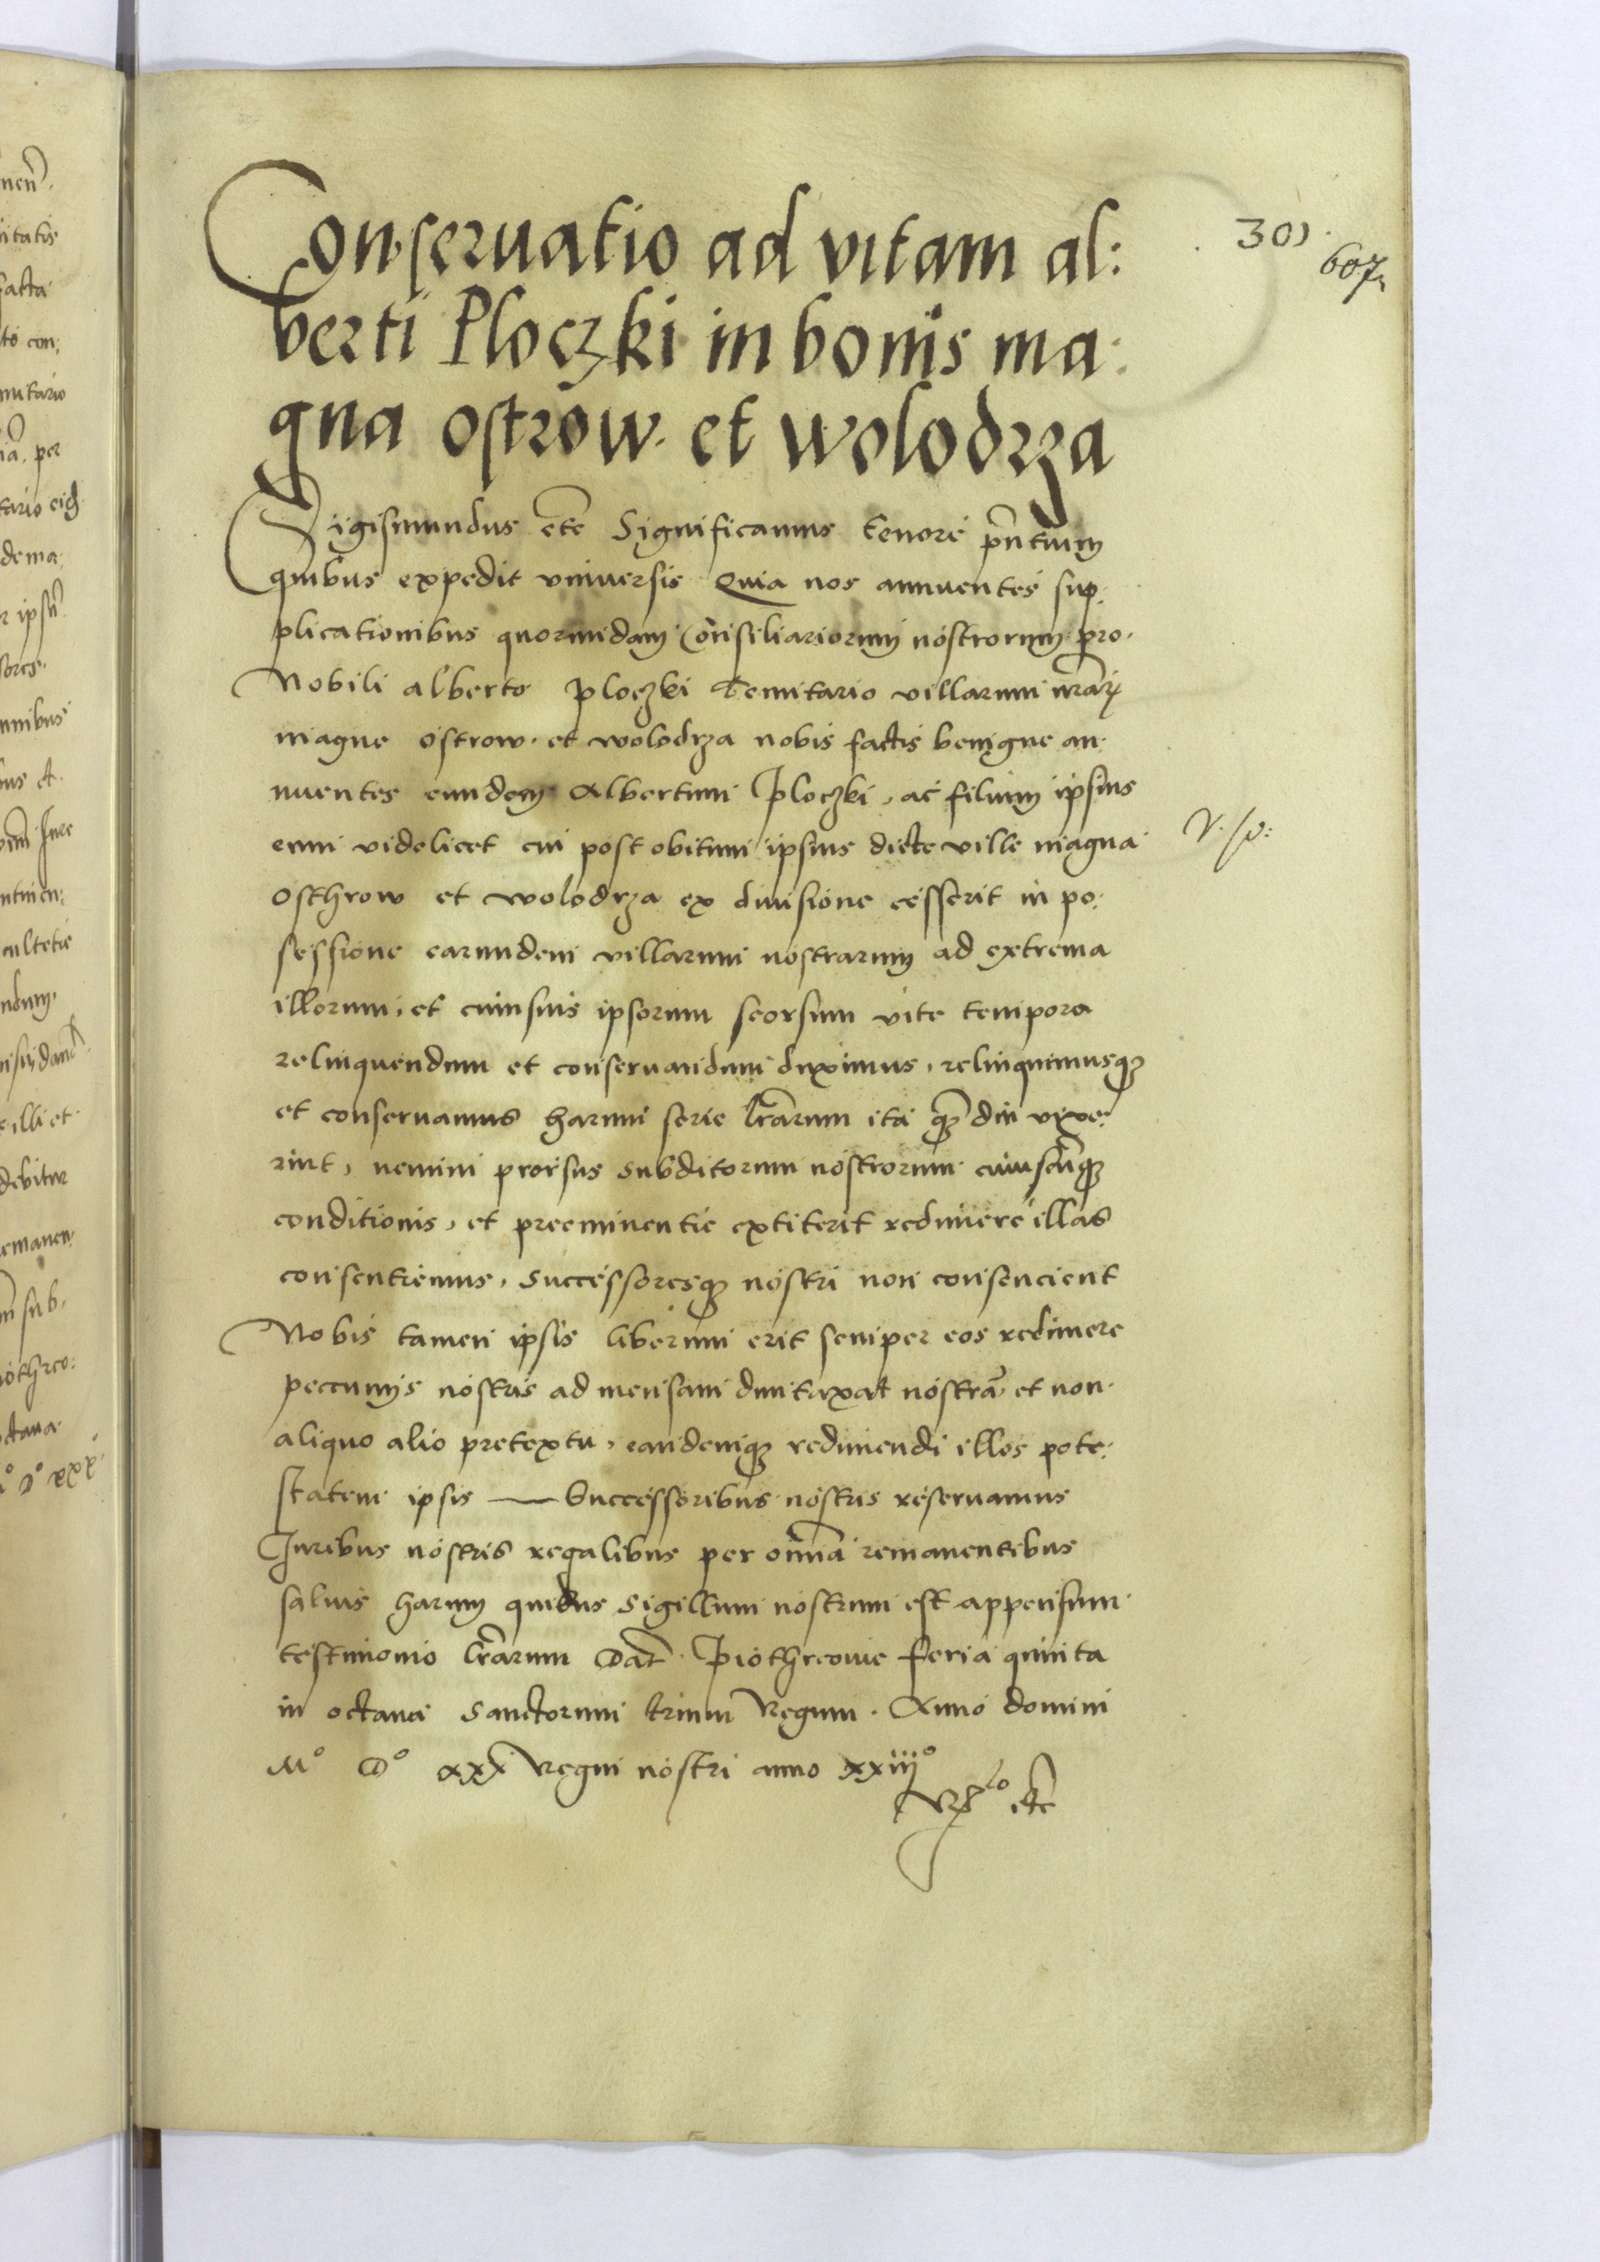 Conseruatio ad vitam al:
berti Ploczki in bonis ma:
gna ostrow. et wolodrza
301.
607
Sigismundus etc Significamus tenore pn̄tium
quibus expedit vniuersis Quia nos annuentes sup:
plicationibus quorundam Consiliariorum nostrorum pro
Nobili alberto ploczki Tenutario villarum nr̄arum
magne ostrow. et wolodrza nobis factis benigne an:
nuentes eundem Albertum Ploczki, ac filium ipsius
eum videlicet cui post obitum ipsius dicte ville magna
Osthrow et wolodrza ex diuisione cesserit in po:
sessione earundem villarum nostrarum ad extrema
illorum, et cuiusuis ipsorum seorsum vite tempora
relinquendum et conseruandum duximus, relinquimusq3
et conseruamus harum serie lr̄arum ita q3 diu vixe:
rint, nemini prorsus subditorum nostrorum cuiuscūq3
conditionis, et preeminentie extiterit redimere illas
consentiemus, Successoresq3 nostri non consencient
Nobis tamen ipsis liberum erit semper eos redimere
peccunijs nostris ad mensam duntaxat nostrā et non
aliquo alio pretextu, eandemq3 redimendi illos pote:
statem ipsis — Successoribus nostris reseruamus
Iuribus nostris regalibus per om̄ia remanentibus
saluis harum quibus Sigillum nostrum est appensum
testimonio lr̄arum Dat̄. Piothrcouie feria quinta
in octaua Sanctorum trium Regum. Anno domini
M° D° xxx Regni nostri anno xxiiij°